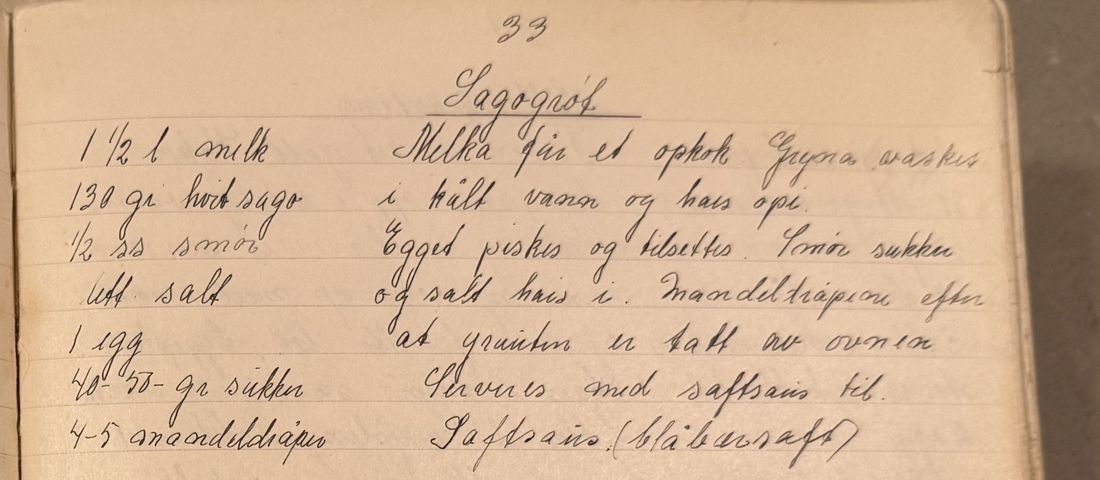 33
Sagogrøt
1 1/2 l melk Melka får et opkok. Gryna vaskes
130 gr hvit sago i kålt vann og haes opi.
1/2 ss smør Egget piskes og tilsettes. Smør sukker
litt salt og salt haes i. Mandeldråpene efter
1 egg at grauten er tatt av ovnen
40-50-gr sukker Serveres med saftsaus til.
4-5 mandeldråper Saftsaus. (blåbærsaft)